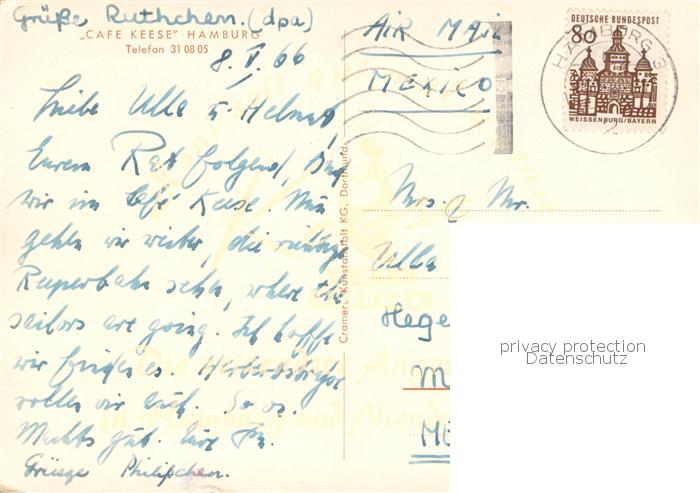 Grüße Ruthchen. (dpa)
„CAFE KEESE" HAMBURG
Telefon 31 08 05
8. V. 66
Liebe Ulla u. Helmut,
Eurem Rat folgend,
wir im Café Keese. Nun
gehen wir weiter, die
Reeperbahn sehn, where the
sailors are going. Ich hoffe
wir finden es.
wollen wir Euch
Machts gut. Eure
Grüsse Philipchen.
Cramers Kunstanstalt KG, Dortmund
AIR MAIL
MEXICO
HAMBURG 3
DEUTSCHE BUNDESPOST
80
WEISSENBURG/BAYERN
Mrs. & Mr.
Ulla
Hege
M
ME
privacy protection
Datenschutz